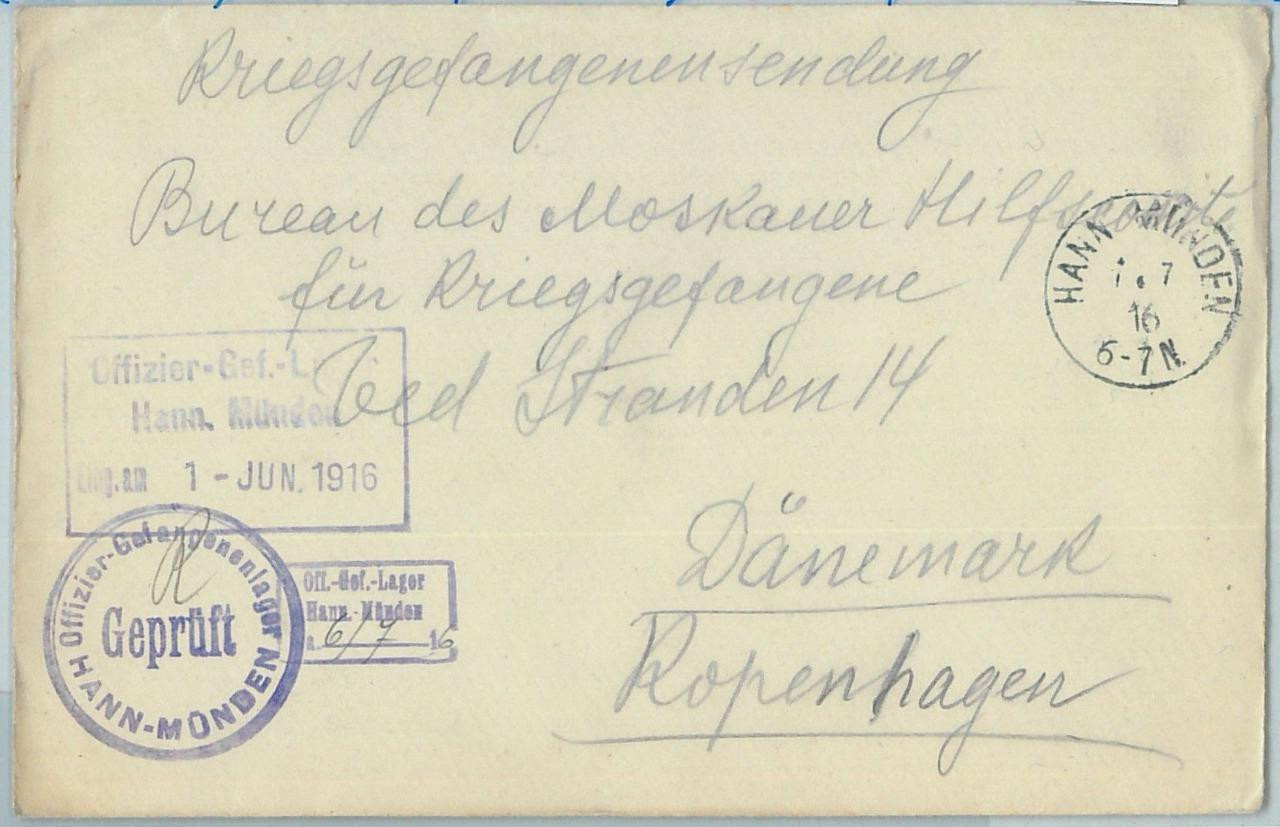 Kriegsgefangenensendung
Bureau des Moskauer Hilfskomite
für Kriegsgefangene
Ved Stranden 14
Dänemark
Kopenhagen
HANN. MÜNDEN
7.7
16
6-7N.
Offizier-Gef.-L
Hann. Münden
Eing. am 1-JUN. 1916
Offizier-Gefangenenlager
R
Geprüft
HANN-MÜNDEN
Off.-Gef.-Lager
Hann.-Münden
6/7 16